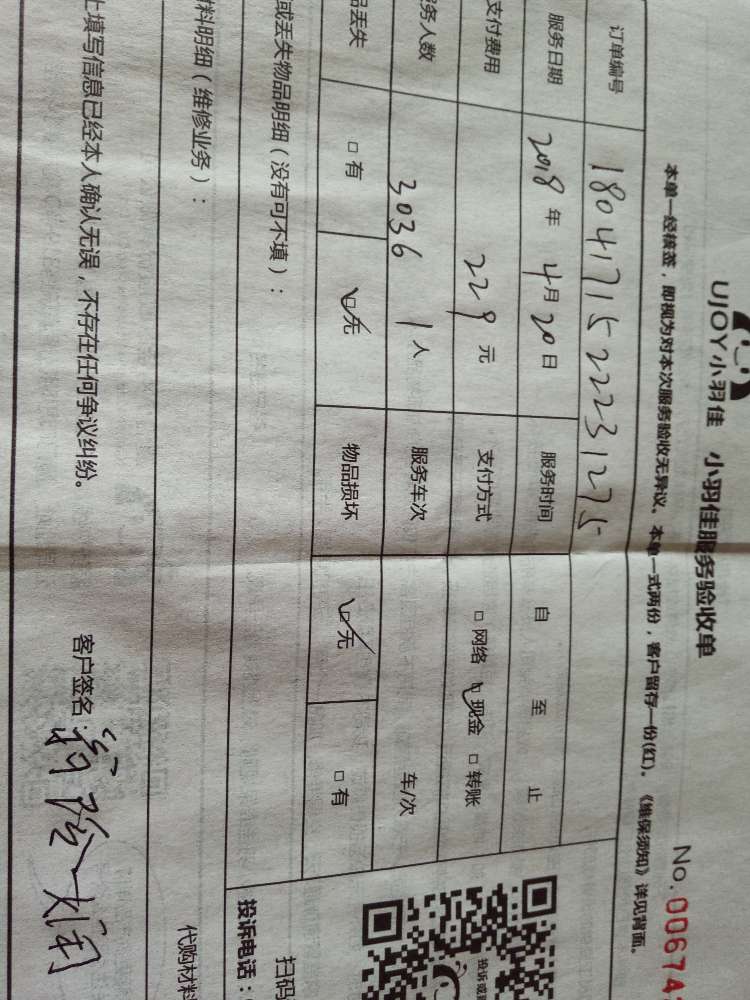 UJOY小羽佳 小羽佳服务验收单
No.00674
本单一经核签，即视为对本次服务验收无异议。本单一式两份，客户留存一份(红)。《维保须知》详见背面。
订单编号 1804171522231275
服务日期 2018年4月20日 服务时间 自 至 止
支付费用 229元 支付方式 □网络 ☑现金 □转账
务人数 3036 1人 服务车次 车/次
品丢失 □有 ☑无 物品损坏 ☑无 □有
或丢失物品明细（没有可不填）：
料明细（维修业务）：
上填写信息已经本人确认无误，不存在任何争议纠纷。 客户签名：
投诉或
扫码
投诉电话：
代购材料